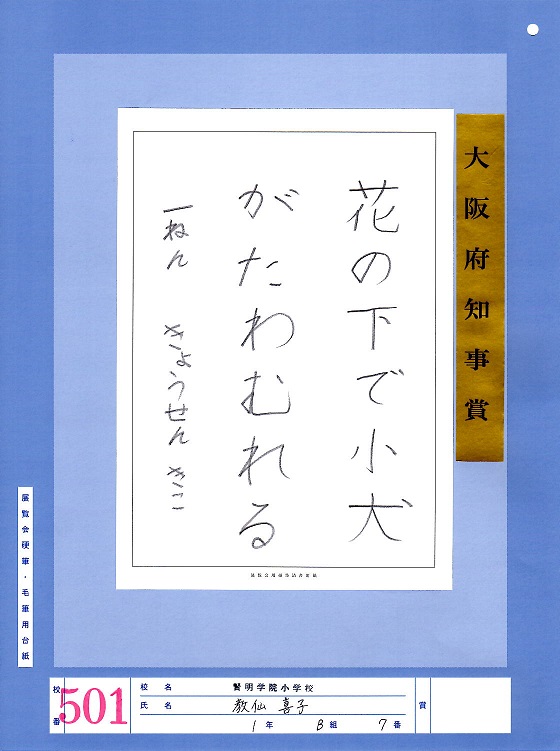 大阪府知事賞
花の下で小犬
がたわむれる
一ねん きょうせん きこ
展覧会硬筆・毛筆用台紙
校番 501
校名 賢明学院小学校
氏名 教仙 喜子
1年 B組 7番
賞